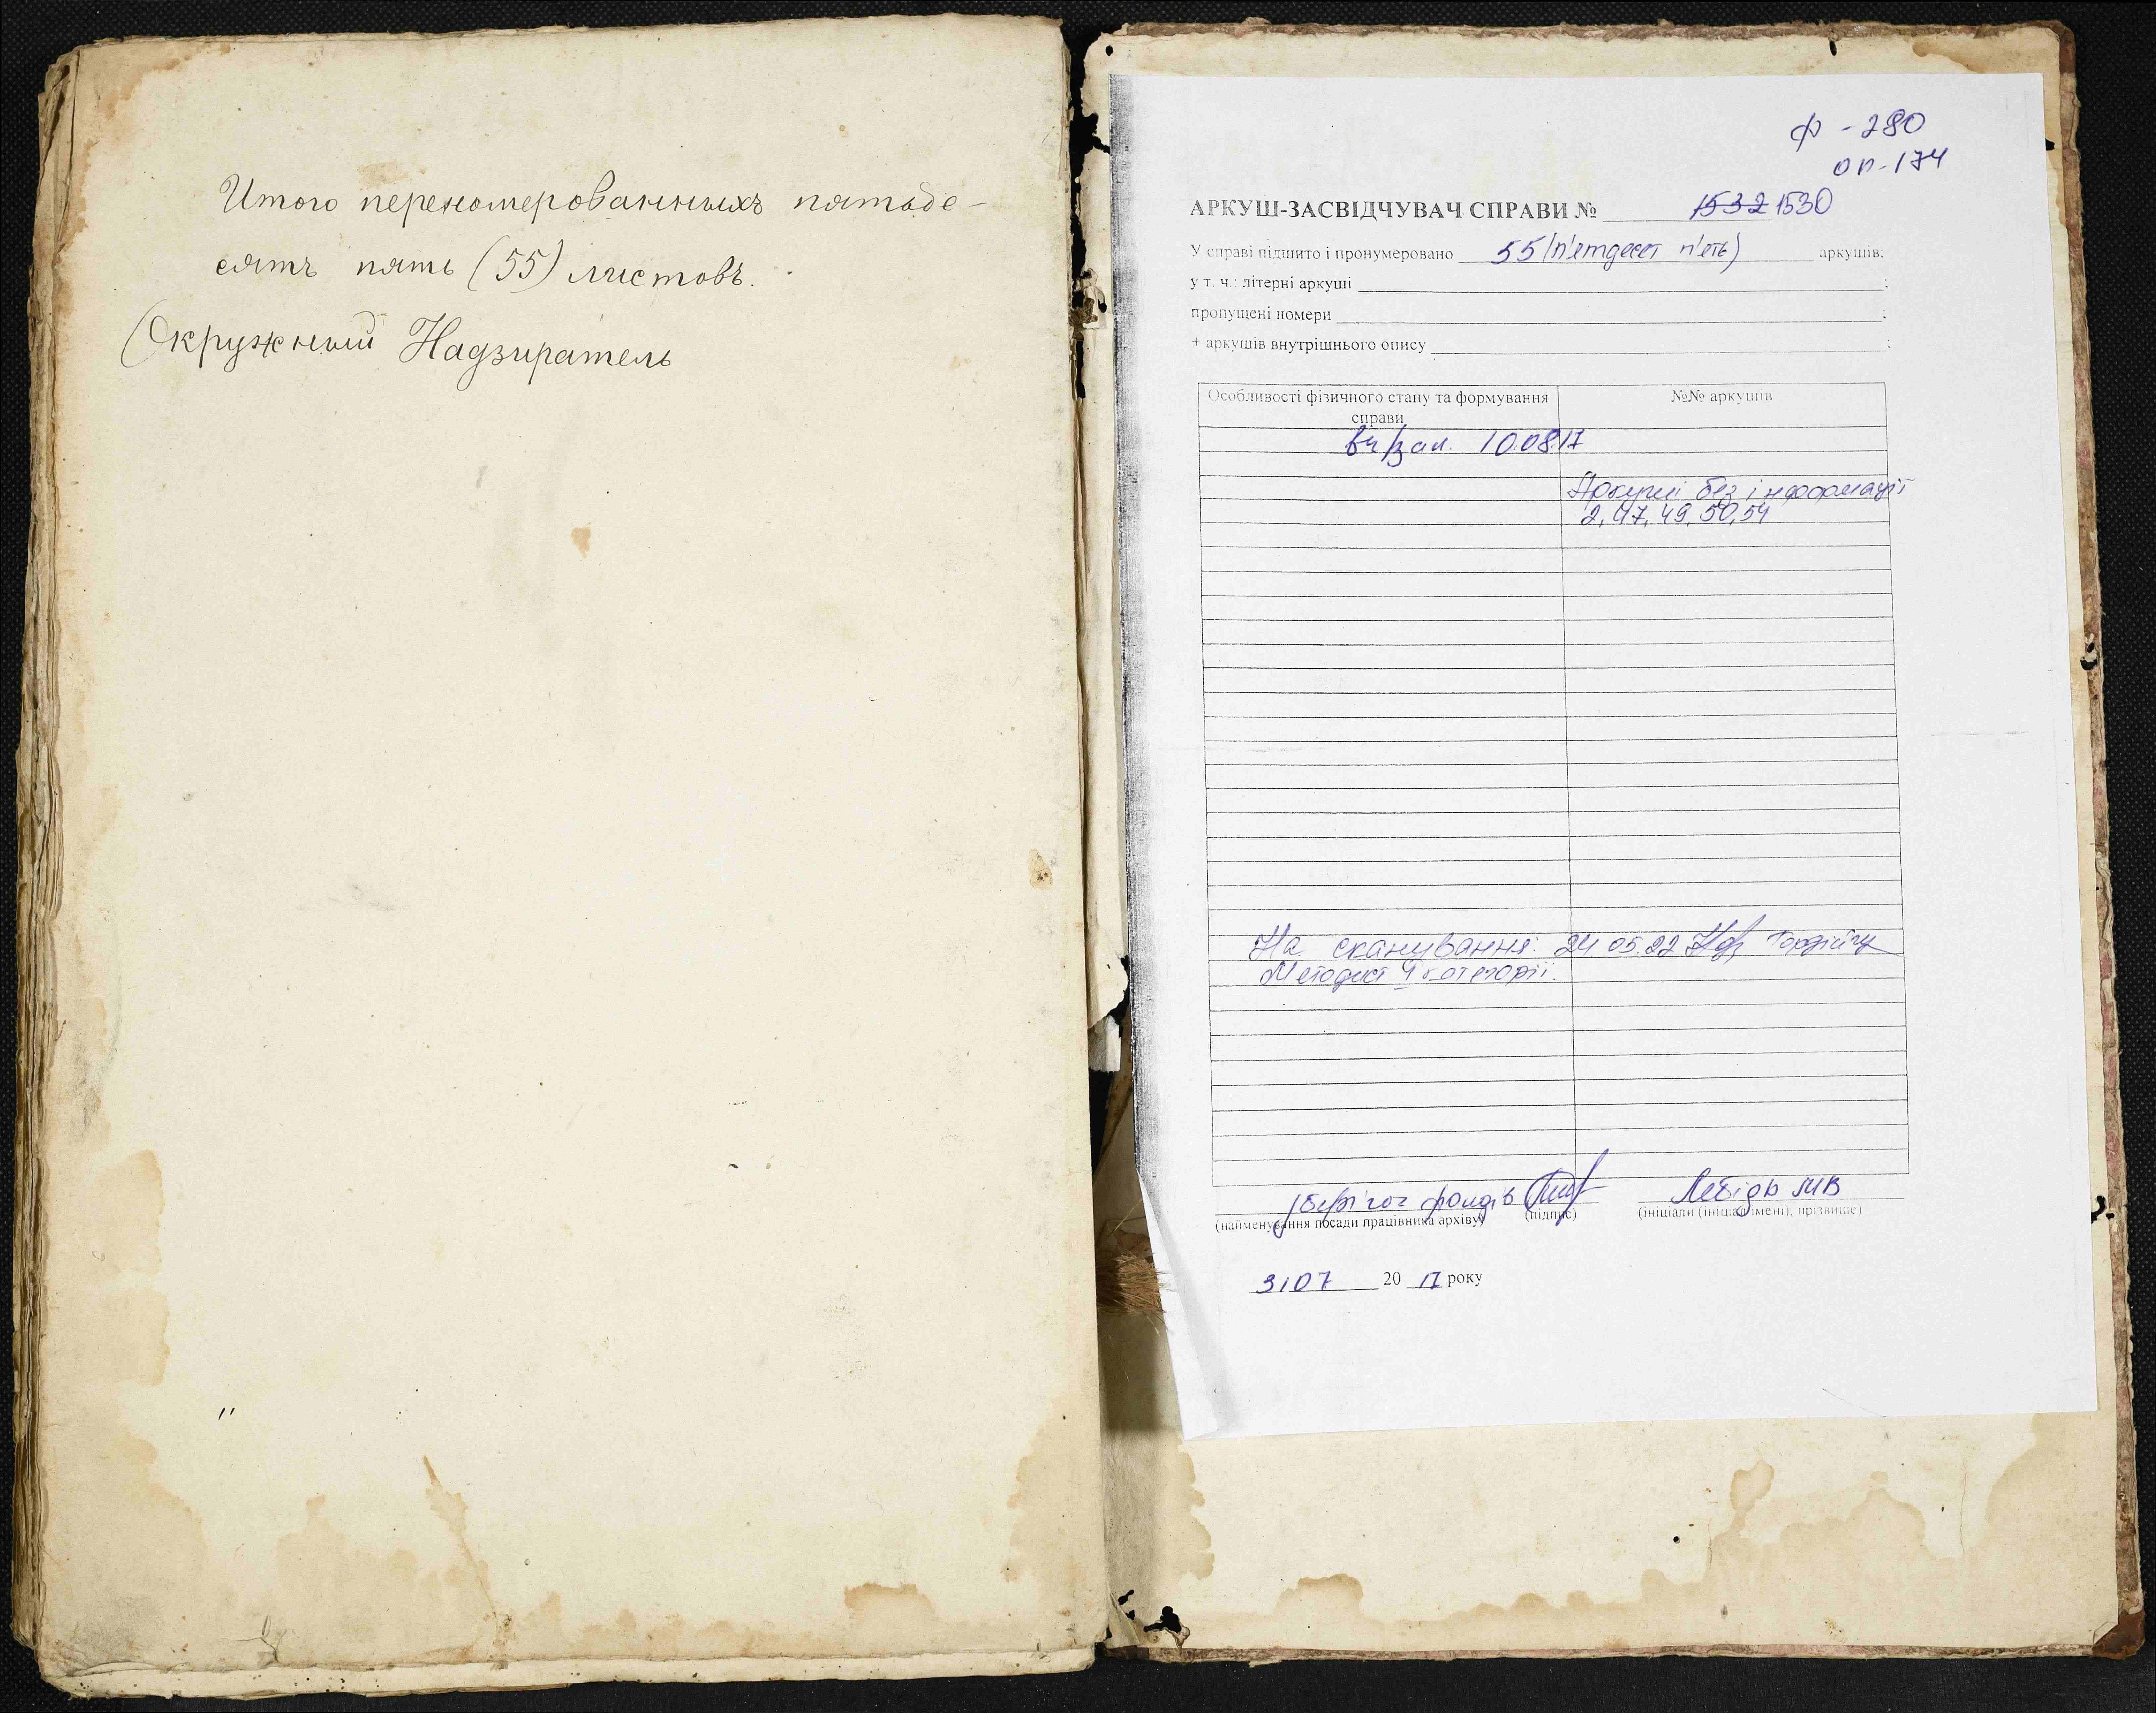 Итого перекомерованныхъ пятьде-
сятъ пять (55) листовъ.
Окружный Надзиратель
ф - 280
оп - 174
АРКУШ-ЗАСВІДЧУВАЧ СПРАВИ № 1532 1530
У справі підшито і пронумеровано 55 (п'ятдесят п'ять) аркушів:
у т. ч.: літерні аркуші ;
пропущені номери ;
+ аркушів внутрішнього опису ;
Особливості фізичного стану та формування справи
№№ аркушів
10.08.17
Аркуші без інформації
2, 47, 49, 50, 54
На сканування: 24 05.22
Методист категорії.
фондів Лебідь МВ
(найменування посади працівника архіву) (підпис) (ініціали (ініціал імені), прізвище)
31 07 20 17 року